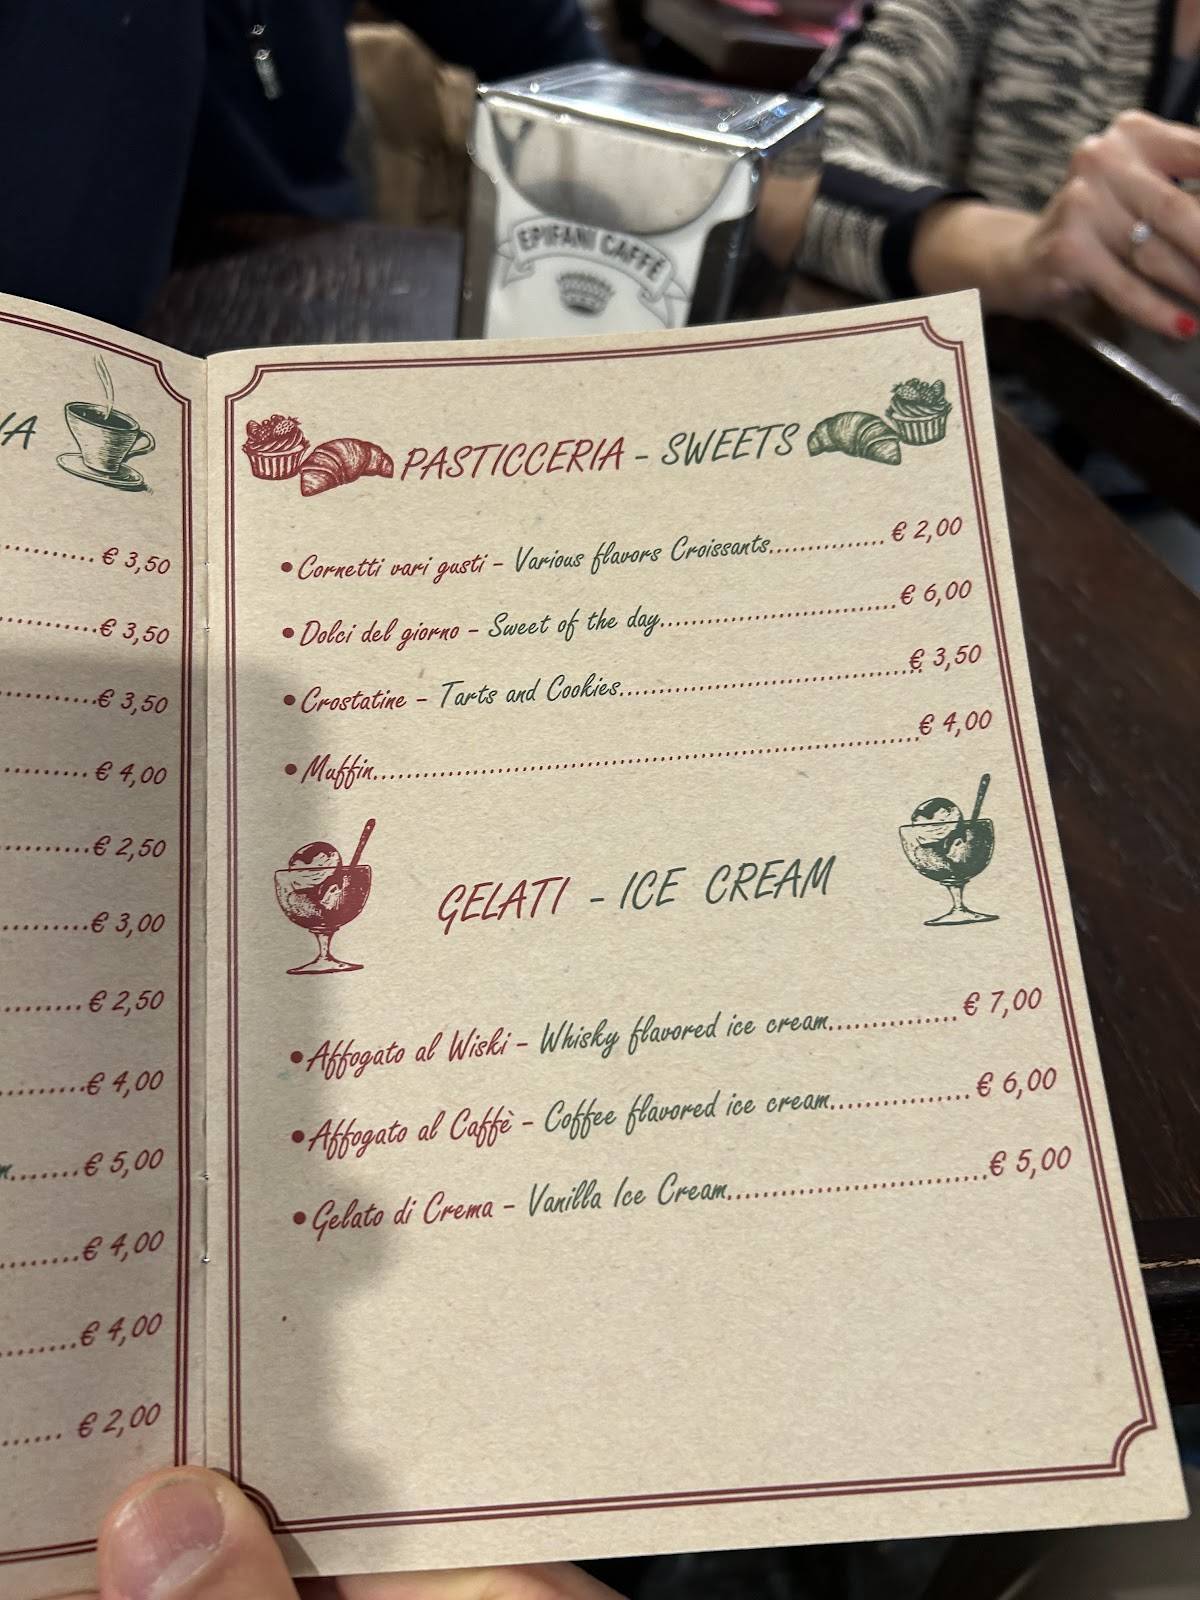 EPIFANI CAFFÈ
€ 3,50
€ 3,50
€ 3,50
€ 4,00
€ 2,50
€ 3,00
€ 2,50
€ 4,00
€ 5,00
€ 4,00
€ 4,00
€ 2,00
PASTICCERIA - SWEETS
• Cornetti vari gusti - Various flavors Croissants............... € 2,00
• Dolci del giorno - Sweet of the day.............................. € 6,00
• Crostatine - Tarts and Cookies..................................... € 3,50
• Muffin.................................................................... € 4,00
GELATI - ICE CREAM
• Affogato al Wiski - Whisky flavored ice cream............... € 7,00
• Affogato al Caffè - Coffee flavored ice cream................ € 6,00
• Gelato di Crema - Vanilla Ice Cream............................. € 5,00